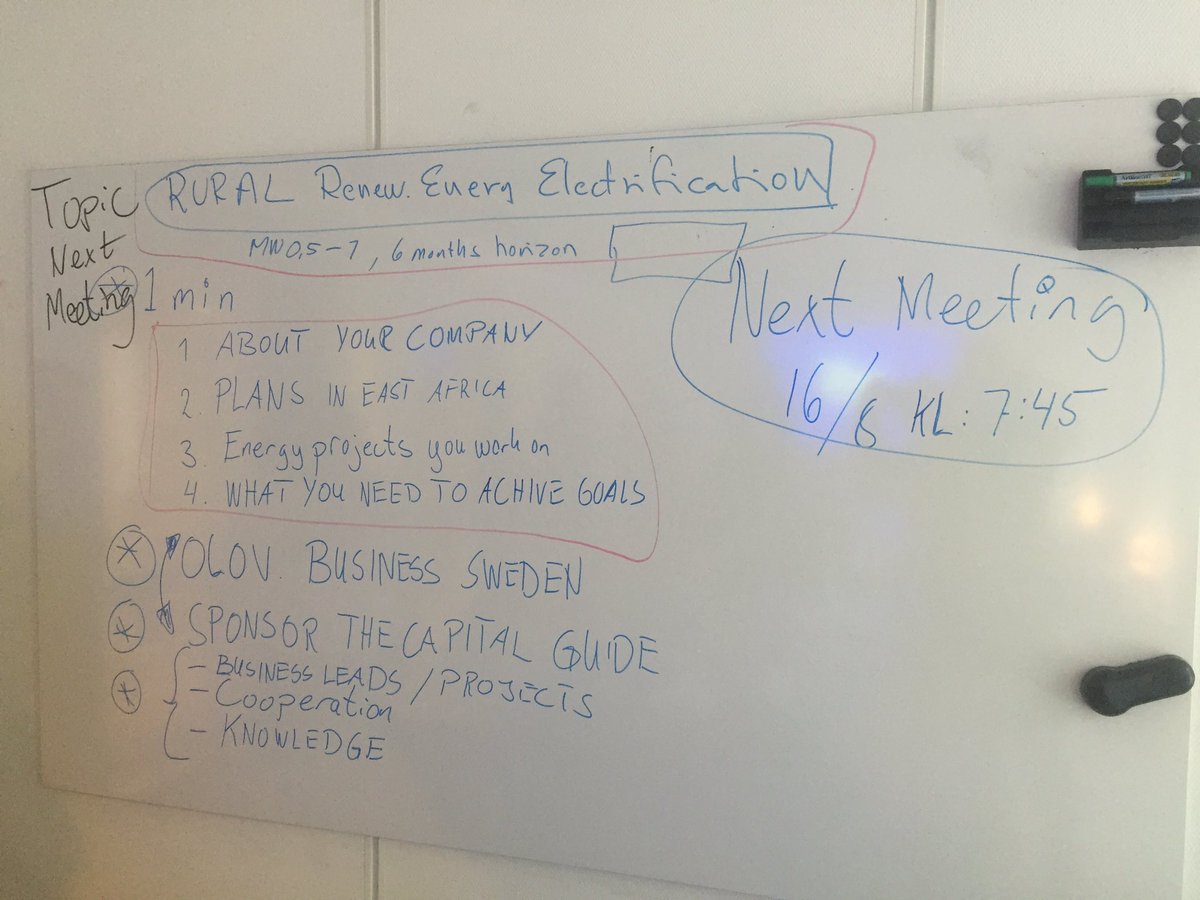 Topic
Next
Meeting
RURAL Renew. Energ Electrification
MW 0,5-7, 6 months horizon
1 min
1 ABOUT YOUR COMPANY
2. PLANS IN EAST AFRICA
3. Energy projects you work on
4. WHAT YOU NEED TO ACHIVE GOALS
OLOV. BUSINESS SWEDEN
SPONSOR THE CAPITAL GUIDE
- BUSINESS LEADS / PROJECTS
- Cooperation
- KNOWLEDGE
Next Meeting
16/8 KL: 7:45